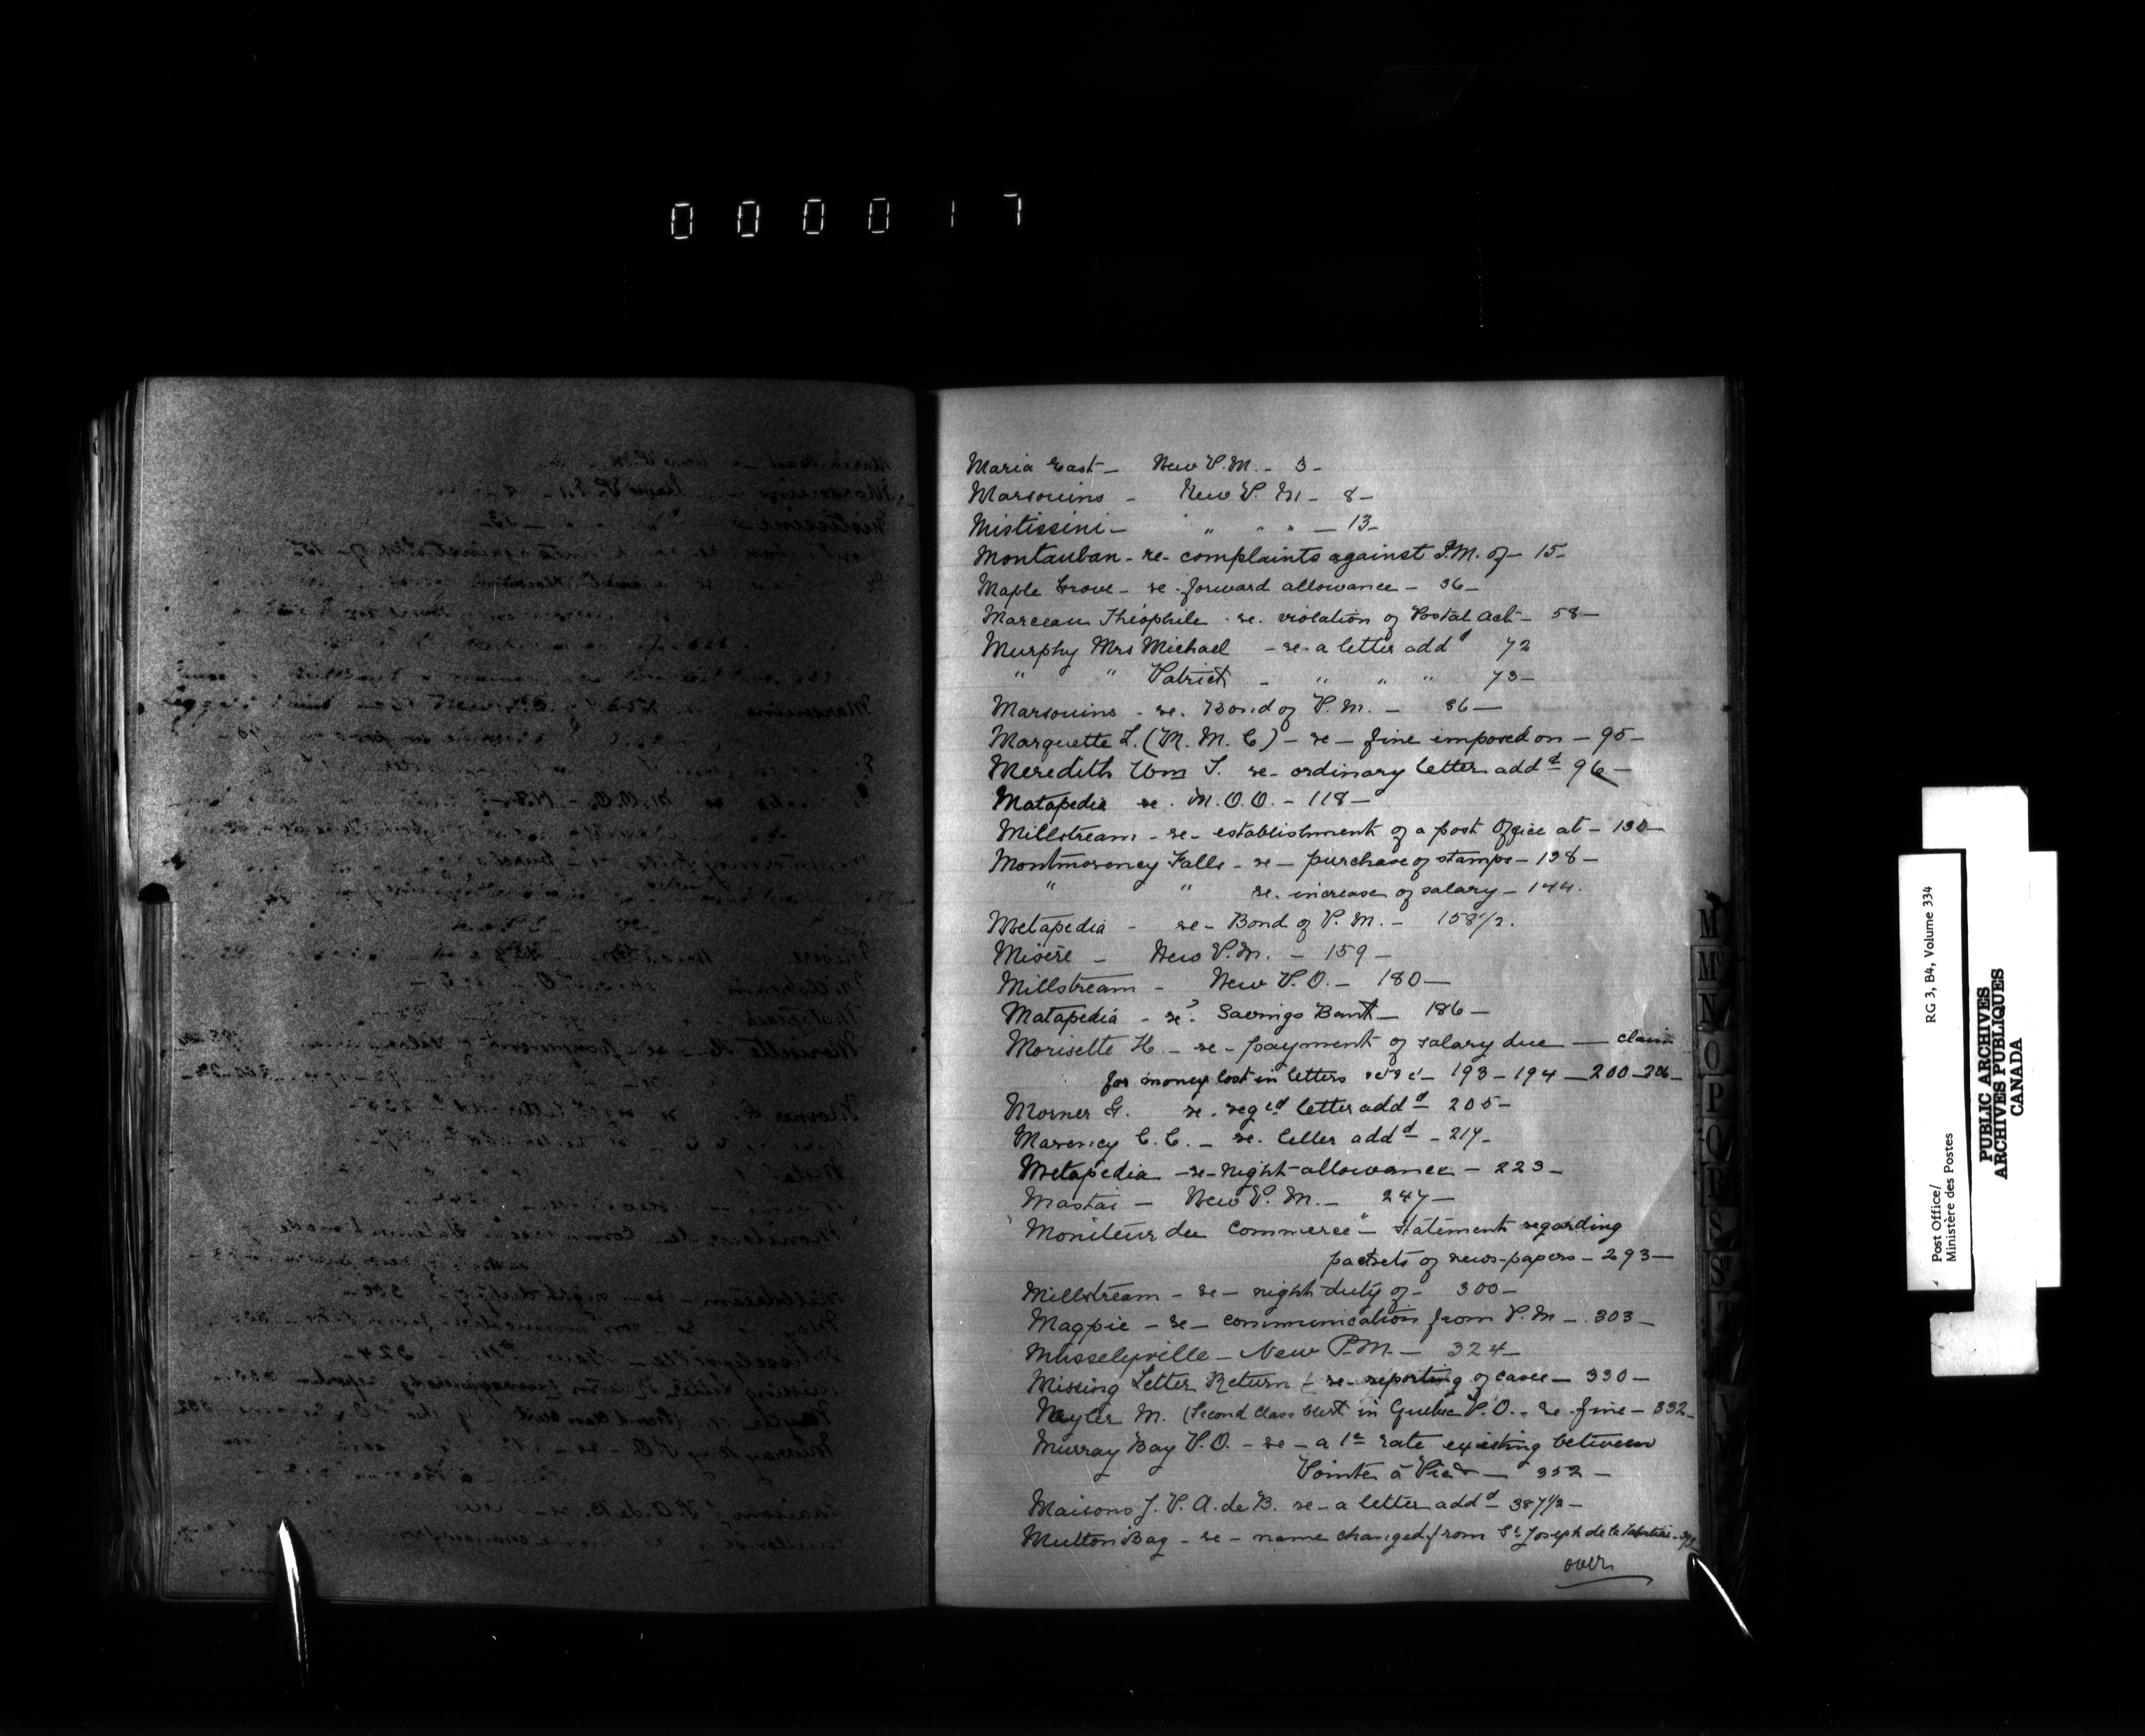 000017
Maria East - New P.M. - 3 -
Marsouins - New P. M - 8 -
Mistissini - " " " - 13 -
Montauban - re - complaints against P.M. of - 15 -
Maple Grove - re - forward allowance - 36 -
Marceau Théophile - re. violation of Postal Act - 58 -
Murphy Mrs Michael - re - a letter addd 72
" " Patrick - " " " 73 -
Marsouins - re. Bond of P.M. - 86 -
Marquette L. (M. M. C) - re - fine imposed on - 95 -
Meredith Wm T. re - ordinary letter addd 96 -
Matapedia re. M.O.O. - 118 -
Millstream - re - establishment of a post Office at - 130 -
Montmorency Falls - re - purchase of stamps - 138 -
" " re. increase of salary - 144.
Metapedia - re - Bond of P.M. - 158 1/2.
Misère - New P.M. - 159 -
Millstream - New P.O. - 180 -
Matapedia - re. Savings Bank - 186 -
Morisette H. - re - payment of salary due - claim
for money lost in letters - 193 - 194 - 200 - 206 -
Morner G. re. reged letter addd 205 -
C.C. - re. letter addd - 217 -
Metapedia - re - night allowance - 223 -
Mastai - New P.M. - 247 -
"Moniteur du Commerce" - statement regarding
packets of news-papers - 293 -
Millstream - re - night duty of - 300 -
Magpie - re - communication from P.M - 303 -
Musselyville - New P.M. - 324 -
Missing Letter Return - re - reporting of cases - 330 -
M. (Second Class Clerk in Quebec P.O. - re. fine - 332 -
Murray Bay P.O. - re - a 1c rate existing between
Pointe à Pic - 352 -
Maisons J. P. A. de B. re - a letter addd - 387 1/2 -
Mutton Bay - re - name changed from St Joseph de la
over
M
Mc
N
O
P
Q
R
S
T
V
Post Office/
Ministère des Postes
RG 3, B4, Volume 334
PUBLIC ARCHIVES
ARCHIVES PUBLIQUES
CANADA